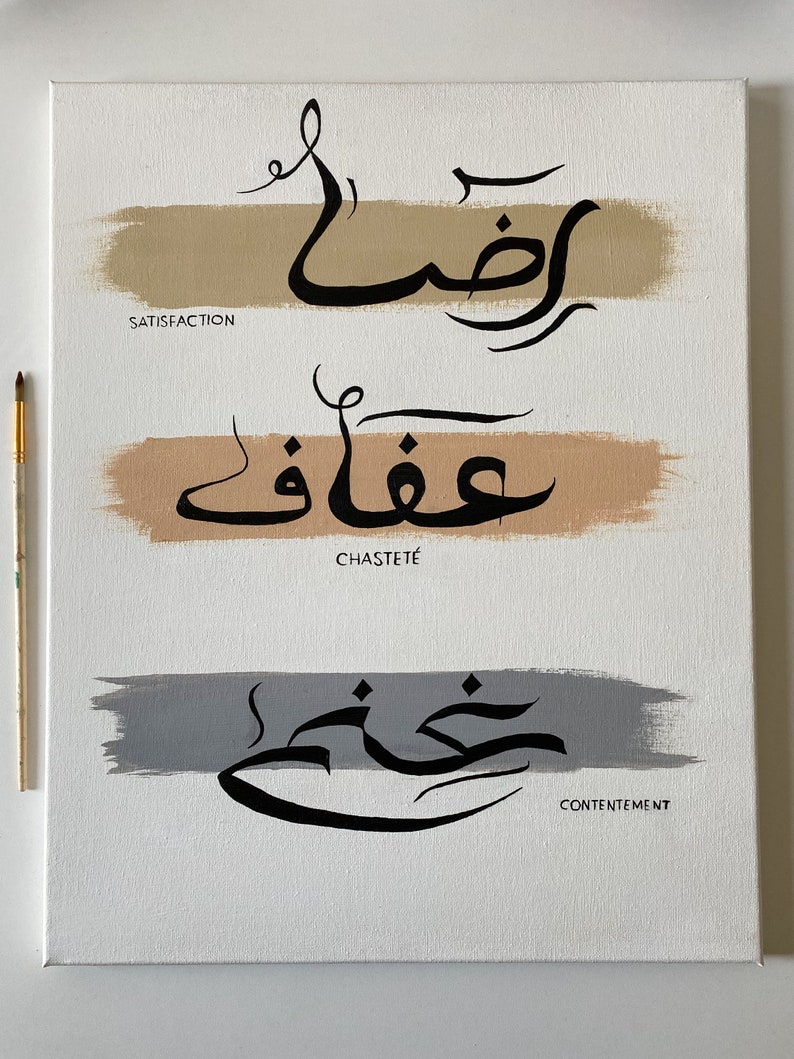 رضا
SATISFACTION
عفاف
CHASTETÉ
غنى
CONTENTEMENT